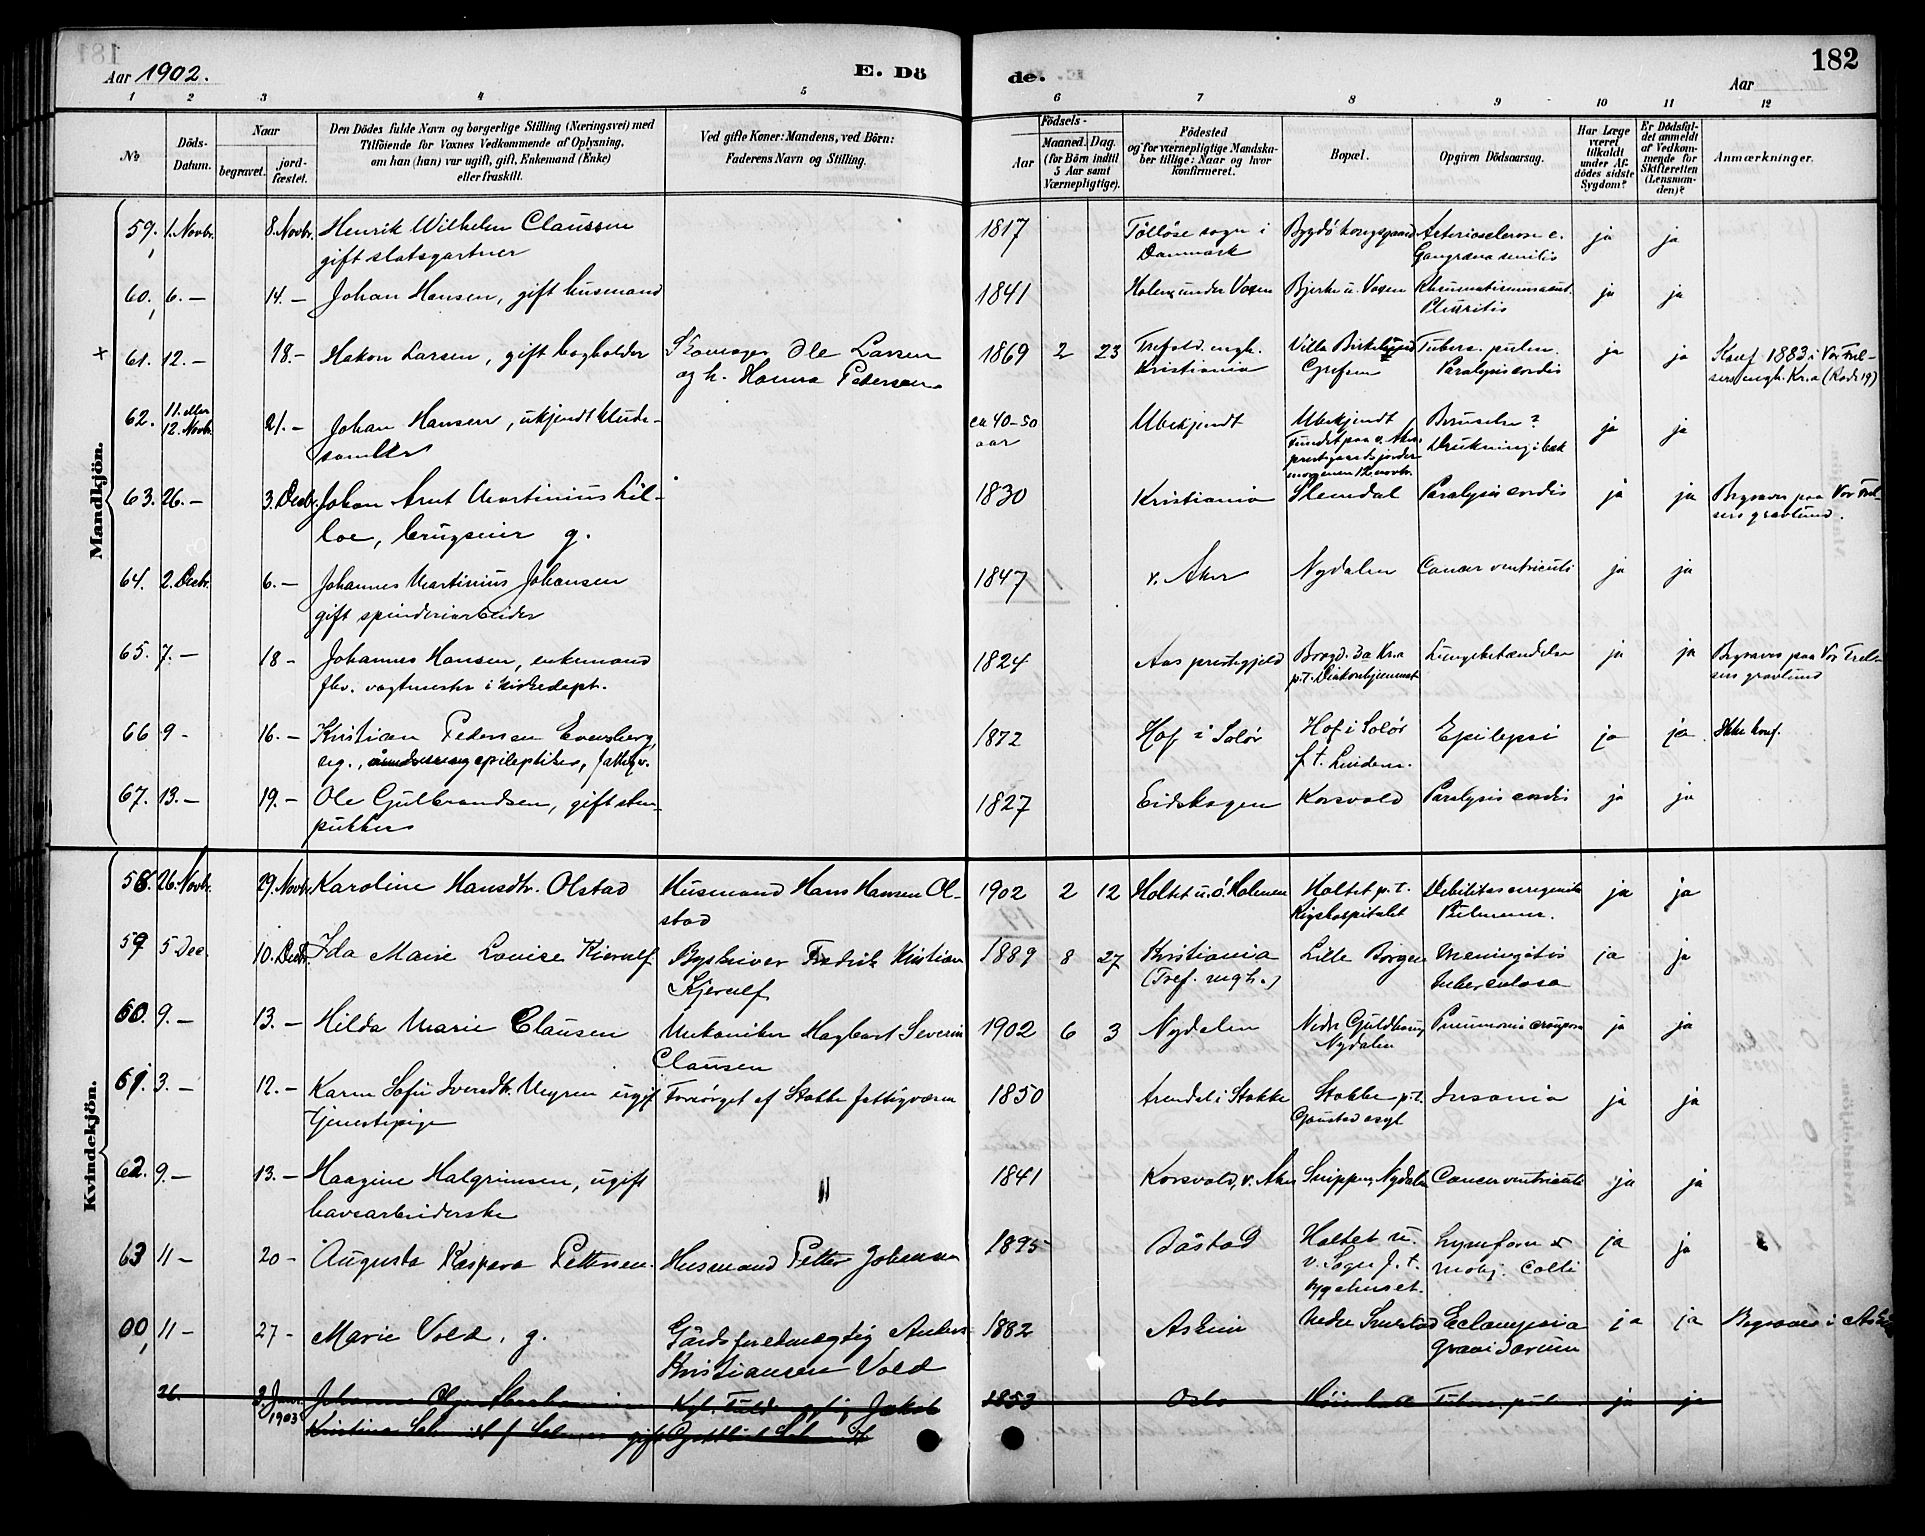 Aar 1902.
E. Dö
de.
182
Aar
1 2 3 4 5 6 7 8 9 10 11 12
No
Döds-
Datum.
Naar
begravet.
jord-
fæstet.
Den Dödes fulde Navn og borgerlige Stilling (Næringsvei) med
Tilföiende for Voxnes Vedkommende af Oplysning,
om han (hun) var ugift, gift, Enkemand (Enke)
eller fraskilt.
Ved gifte Koner: Mandens, ved Börn:
Faderens Navn og Stilling.
Födsels-
Aar
Maaned. Dag.
(for Börn indtil
5 Aar samt
Værnepligtige).
Födested
og for værnepligtige Mandska-
ber tillige: Naar og hvor
konfirmeret.
Bopæl.
Opgiven Dödsaarsag.
Har Læge
været
tilkaldt
under Af-
dödes sidste
Sygdom?
Er Dödsfal-
det anmeldt
af Vedkom-
mende for
Skifteretten
(Lensman-
den)?
Anmærkninger.
Mandkjön.
59. 1. Novbr. 8. Novbr. Henrik Wilhelm Claussen 1817 Tölløse sogn i Bygdö kongsgaard Arteriosclerose c. ja ja
gift slotsgartner Danmark Gangræna senilis
60. 6. — 14. — Johan Hansen, gift husmand 1841 Holm under Voxen Bjerke u. Voxen Rheumatismus acut. ja ja
Pleuritis
61. 12. — 18. — Hakon Larsen, gift bogholder Skomager Ole Larsen 1869 2 23 Trefold. mgh. Villa Birkelund Tuberc. pulm. ja ja Konf. 1883 i Vor Frel-
og h. Hanna Pedersen Kristiania Grefsen Paralysis cordis sers mgh. Kr.a
62. 11. eller 21. — Johan Hansen, ukjendt klude- ca 40-50 Ubekjendt Ubekjendt Beruselse? ja ja
12. Novbr. samler aar Fundet paa v. Akers Drukning i bæk
prestegaards jorder
morgenen 12. novbr.
63. 26. — 3. Decbr. Johan Arnt Martinius Lil- 1830 Kristiania Slemdal Paralysis cordis ja ja Begraves paa Vor Frel-
loe, brugseier g. sers gravlund.
64. 2. Decbr. 6. — Johannes Martinius Johansen 1847 v. Aker Nydalen Cancer ventriculi ja ja
gift spinderiarbeider
65. 7. — 18 — Johannes Hansen, enkemand 1824 Aas prestegjeld Kr.a Lungebetændelse ja ja Begraves paa Vor Frel-
fhv. vagtmester i kirkedept. p.t. Diakonhjemmet sers gravlund
66 9 — 16. — Kristian Pedersen Evensberg, 1872 Hof i Solør Hof i Solør Epilepsi ja ja Ikke konf.
ug., epileptiker, fattigv. f. t. Lindern.
67. 13. — 19. — Ole Gulbrandsen, gift sten- 1827 Eidskogen Korsvold Paralysis cordis ja ja
pukker
Kvindekjön.
58. 26. Novbr. 29. Novbr. Karoline Hansdtr. Olstad Husmand Hans Hansen Ol- 1902 2 12 Holtet u. ö. Holmen Holtet p.t. Debilitas congenita ja ja
stad Rigshospitalet
59 5 Dec. 10. Decbr. Ida Marie Louise Kierulf Byskriver Fredrik Kristian 1889 8 27 Kristiania Lille Borgen Meningitis ja ja
Kjerulf (Tref. mgh.) tuberculosa
60. 9. — 13. — Hilda Marie Clausen Mekaniker Hagbart Severin 1902 6 3 Nydalen Nedr. Guldhaug Pneumonia crouposa ja ja
Clausen Nydalen
61. 3. — 12. — Karen Sofie Iversdtr. Myren ugift Forsörget af Stokke fattigvæsen 1850 Arendal i Stokke Stokke p.t. Insania ja ja
Tjenestepige Gaustad asyl
62. 9. — 13. — Haagine Halgrimsen, ugift " 1841 Korsvold, v. Aker Snippen, Nydalen Cancer ventriculi ja ja
havearbeiderske
63 11 — 20 — Augusta Kaspara Pettersen. Husmand Petter Johansen 1895 Båstad Holtet u. Lymfom ja ja
v. Sogn f. t. colli
sygehuset.
00, 11 — 27 — Marie Vold, g. Gårdsfuldmægtig Anders 1882 Askim Nedre Smestad Eclampsia ja ja Begraves i
Kristiansen Vold gravidarum
26. 3. Janr. Johanne Jakob 1853 Oslo Tuberc. pulm. ja ja
1903 Kristine gift